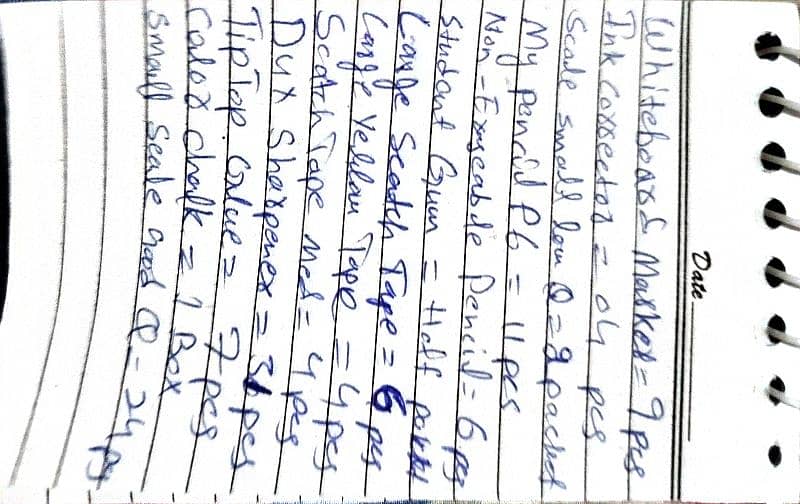 Date
Whiteboard Marker = 9 pcs
Ink Corrector = 04 pcs
Scale small low Q = 2 packet
My pencil P6 = 11 pcs
Non-Exuceable Pencil = 6 pcs
Student Gum = Half
Large Scatch Tape = 6 pcs
Large Yellow Tape = 4 pcs
Scatch Tape med = 4 pcs
Dux Sharpener = pcs
TipTop Glue = 7 pcs
Color chalk = 1 Box
Small Scale good Q - 24 ps